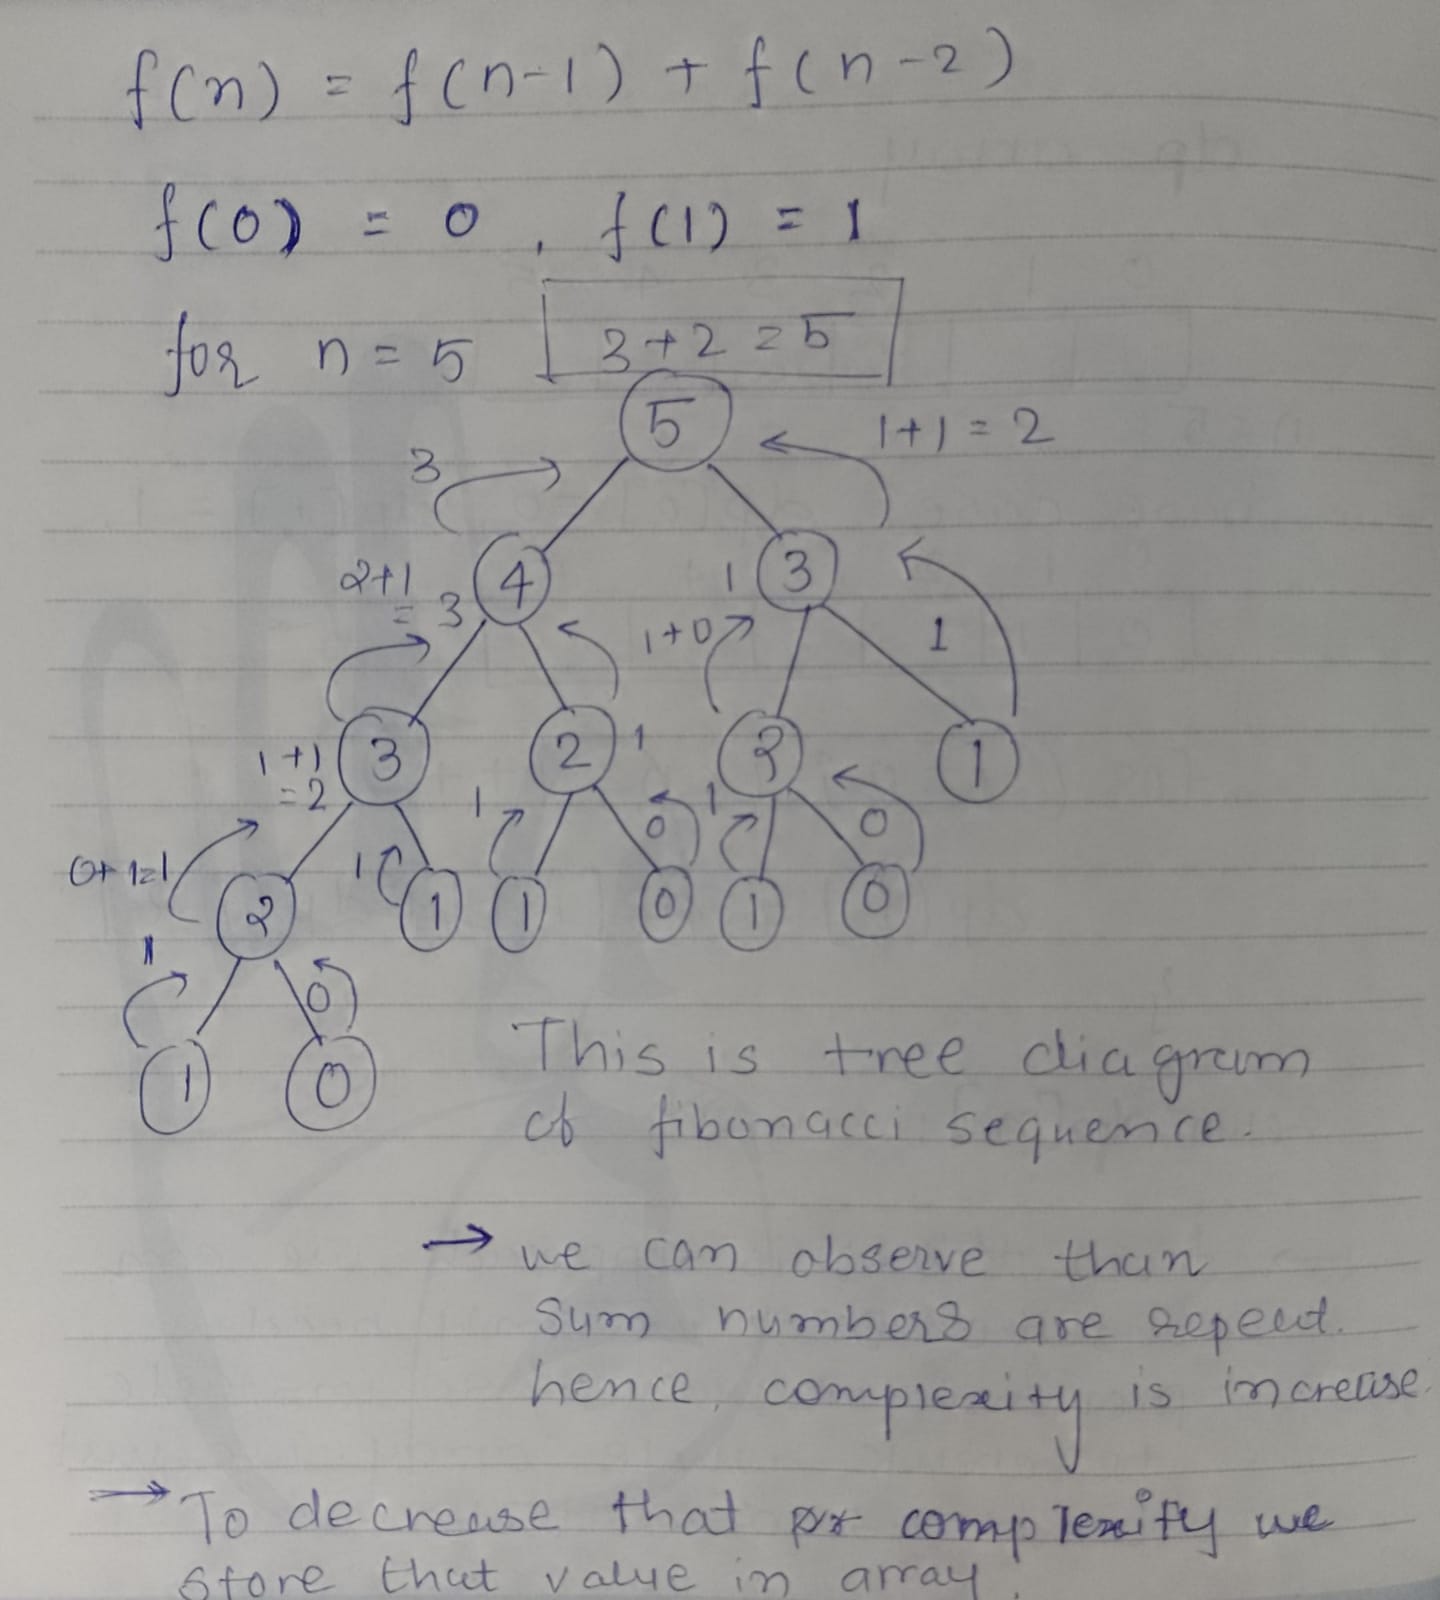 f(n) = f(n-1) + f(n-2)
f(0) = 0 , f(1) = 1
for n = 5
3+2=5
5
1+1=2
3
2+1
=3
4
1
3
1+0
1
1+1
=2
3
2
1
2
1
0+1=1
2
1
1
1
1
0
0
1
1
0
0
1
0
1
0
This is tree diagram
of fibonacci sequence.
→ we can observe than
sum numbers are repeat.
hence, complexity is increase.
→ To decrease that complexity we
store that value in array.